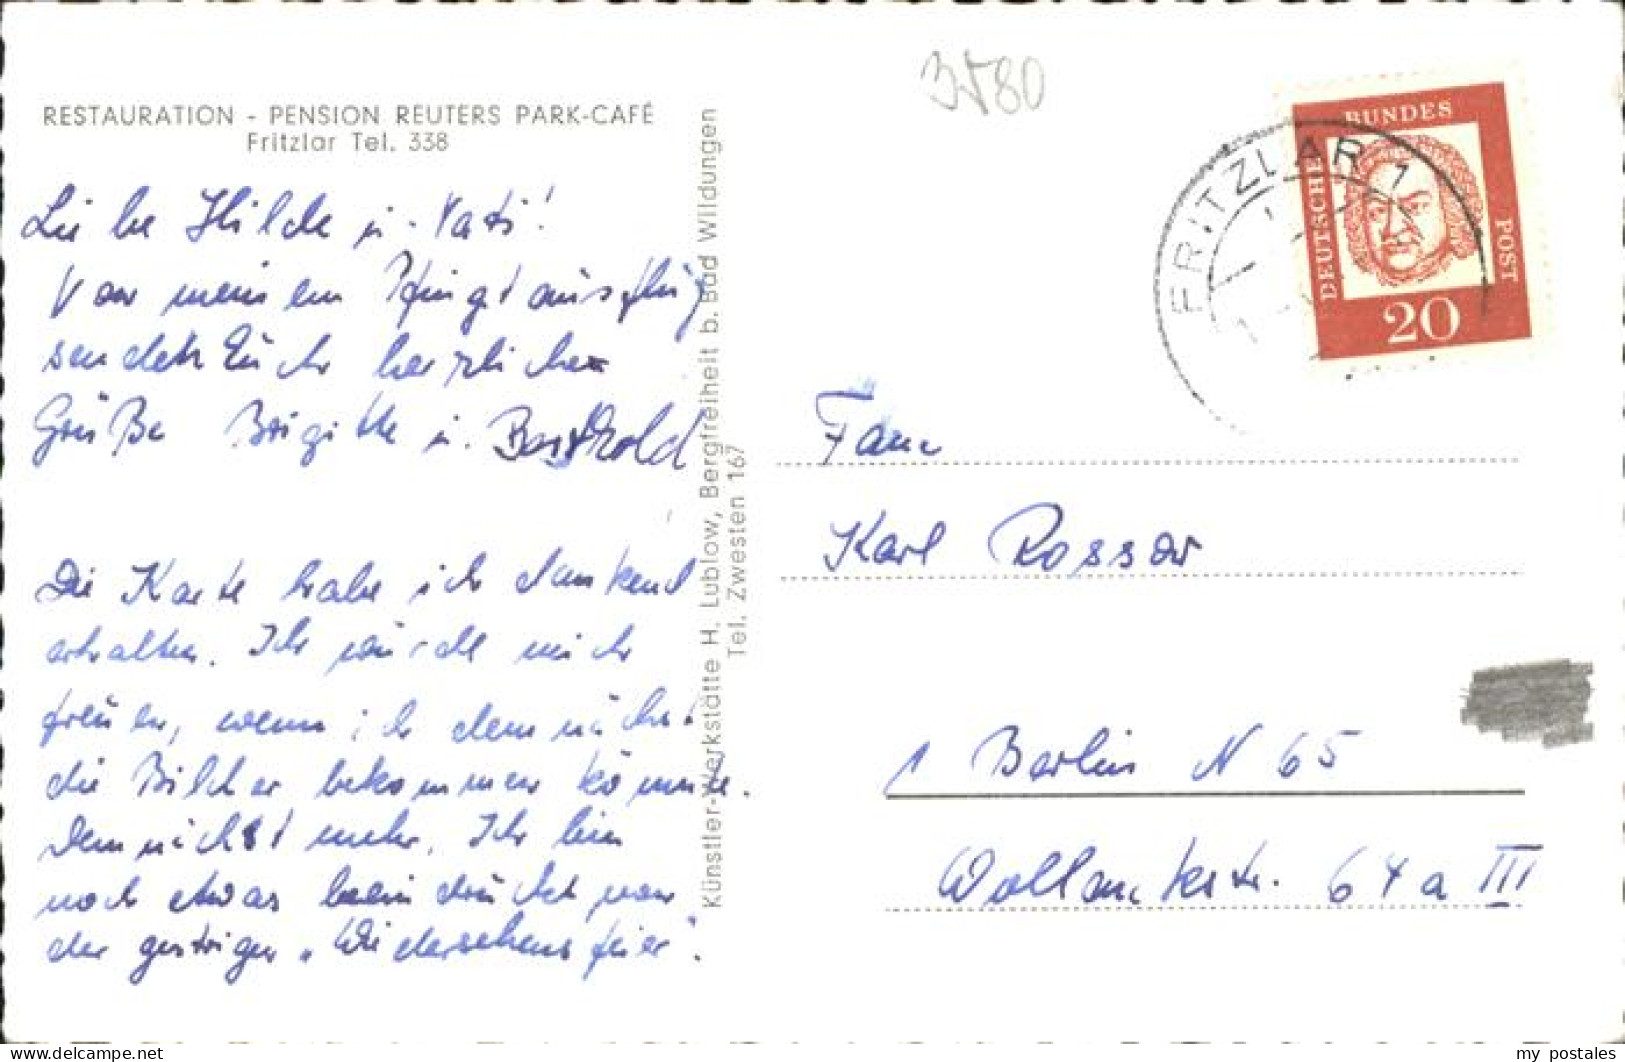 RESTAURATION - PENSION REUTERS PARK-CAFÉ
Fritzlar Tel. 338
Liebe Hilde u. Vati!
Von meinem Pfingstausflug
senden Euch herzliche
Grüße Brigitte u. Barthold
Die Karte habe ich dankend
erhalten. Ich würde mich
freuen, wenn ich demnächst
die Bilder bekommen könnte.
Demnächst mehr. Ich bin
noch etwas beeindruckt von
der gestrigen „Wiedersehensfeier".
Künstler-Werkstätte H. Lublow, Bergfreiheit b. Bad Wildungen
Tel. Zwesten 167
3580
FRITZLAR 1
DEUTSCHE BUNDES POST
20
Fam.
Karl Rossow
1 Berlin N 65
64 a III
my postales